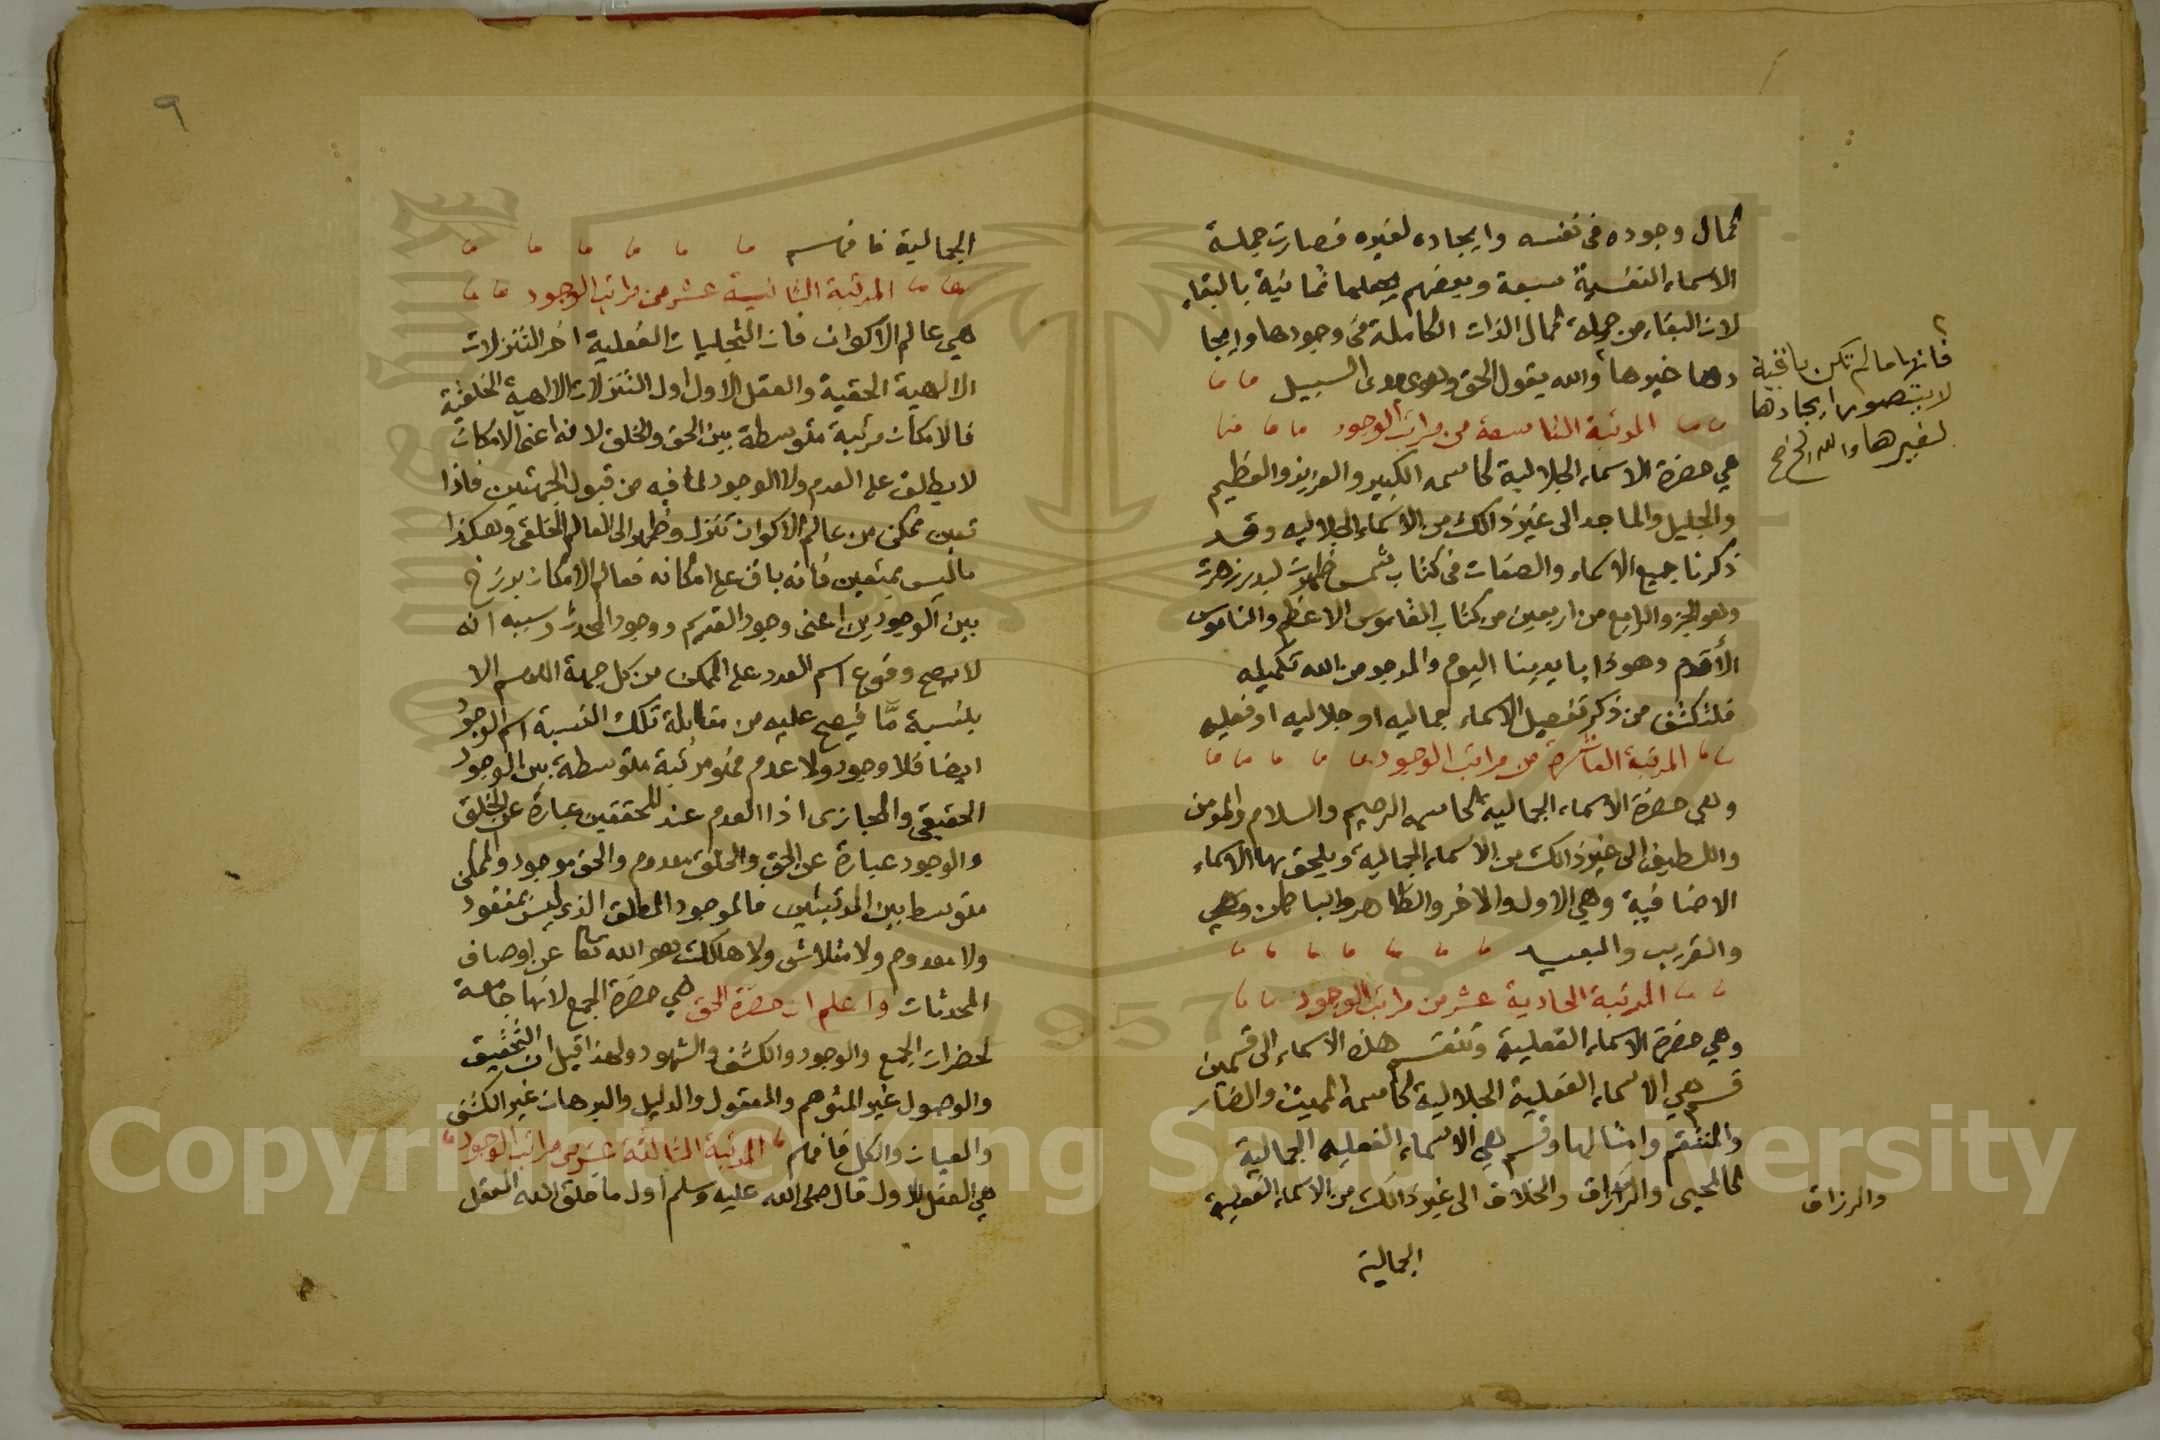 كمال وجوده فى نفسه وايجاده لغيره فصارت جملة
الاسماء النفسية سبعة وبعضهم يجعلها ثمانية بالبقاء
لان البقاء من جملة كمال الذات الكاملة فى وجودها وايجا
دها غيرها والله يقول الحق وهو يهدى السبيل
فانها ما لم تكن باقية
لا يتصور ايجادها
لغيرها والله الخ صح
المرتبة التاسعة من مراتب الوجود
هي حضرة الاسماء الجلالية كاسمه الكبير والعزيز والعظيم
والجليل والماجد الى غير ذالك من الاسماء الجلاليه وقد
ذكرنا جميع الاسماء والصفات فى كتاب شمس ظهرت لبدر زهرت
وهو الجزو الرابع من اربعين من كتاب القاموس الاعظم والناموس
الأقدم وهو ذا بايدينا اليوم والمرجو من الله تكميله
فلنكتف من ذكر تفصيل الاسماء جماليه او جلاليه او فعليه
المرتبة العاشرة من مراتب الوجود
وهي حضرة الاسماء الجمالية كاسمه الرحيم والسلام والمومن
واللطيف الى غير ذالك من الاسماء الجماليه ويلحق بها الاسماء
الاضافية وهي الاول والاخر والظاهر والباطن وهي
والقريب والبعيد
المرتبة الحادية عشر من مراتب الوجود
وهي حضرة الاسماء الفعلية وتنقسم هذه الاسماء الى قسمين
قسم هي الاسماء الفعلية الجلالية كاسمه المميت والضار
والمنتقم وامثالها وقسم هي الاسماء الفعليه الجمالية
كالمحيى والرزاق والخلاق الى غير ذالك من الاسماء الفعلية
والرزاق
الجمالية
٩
الجمالية فافهم
المرتبة الثانية عشر من مراتب الوجود
هي عالم الاكوان فان التجليات الفعلية اخر التنزلات
الالهية الحقية والعقل الاول اول التنزلات الالهية الخلقية
فالامكان مرتبة متوسطة بين الحق والخلق لانه اعنى الامكان
لا يطلق على العدم ولا الوجود لما فيه من قبول الجهتين فاذا
تعين ممكن من عالم الاكوان تنزل وظهر الى العالم الخلقى وهكذا
ما ليس بمتعين فانه باق على امكانه فعالم الامكان برزخ
بين الوجودين اعنى وجود القديم ووجود المحدث وسببه انه
لا يصح وقوع اسم العدد على الممكن من كل جهة اللهم الا
بنسبة مّا فيصح عليه من مقابلة تلك النسبة اسم الوجود
ايضا فلا وجود ولا عدم فهو مرتبة متوسطة بين الوجود
الحقيقى والمجازى اذا العدم عند المحققين عبارة عن الخلق
والوجود عبارة عن الحق والخلق معدوم والحق موجود والممكن
متوسط بين المرتبتين فالموجود المطلق الذى ليس بمفقود
ولا معدوم ولا متلاشى ولا هالك هو الله تعا عن اوصاف
المحدثات واعلم ان حضرة الحق هي حضرة الجمع لانها جامعة
لحضرات الجمع والوجود والكشف والشهود ولهذا قيل ان التحقيق
والوصول غير المتوهم والمعقول والدليل والبرهان غير الكشف
والعيان والكل فافهم المرتبة الثالثة عشر من مراتب الوجود
هي العقل الاول قال صلى الله عليه وسلم اول ما خلق الله العقل
1957
Copyright © King Saud University